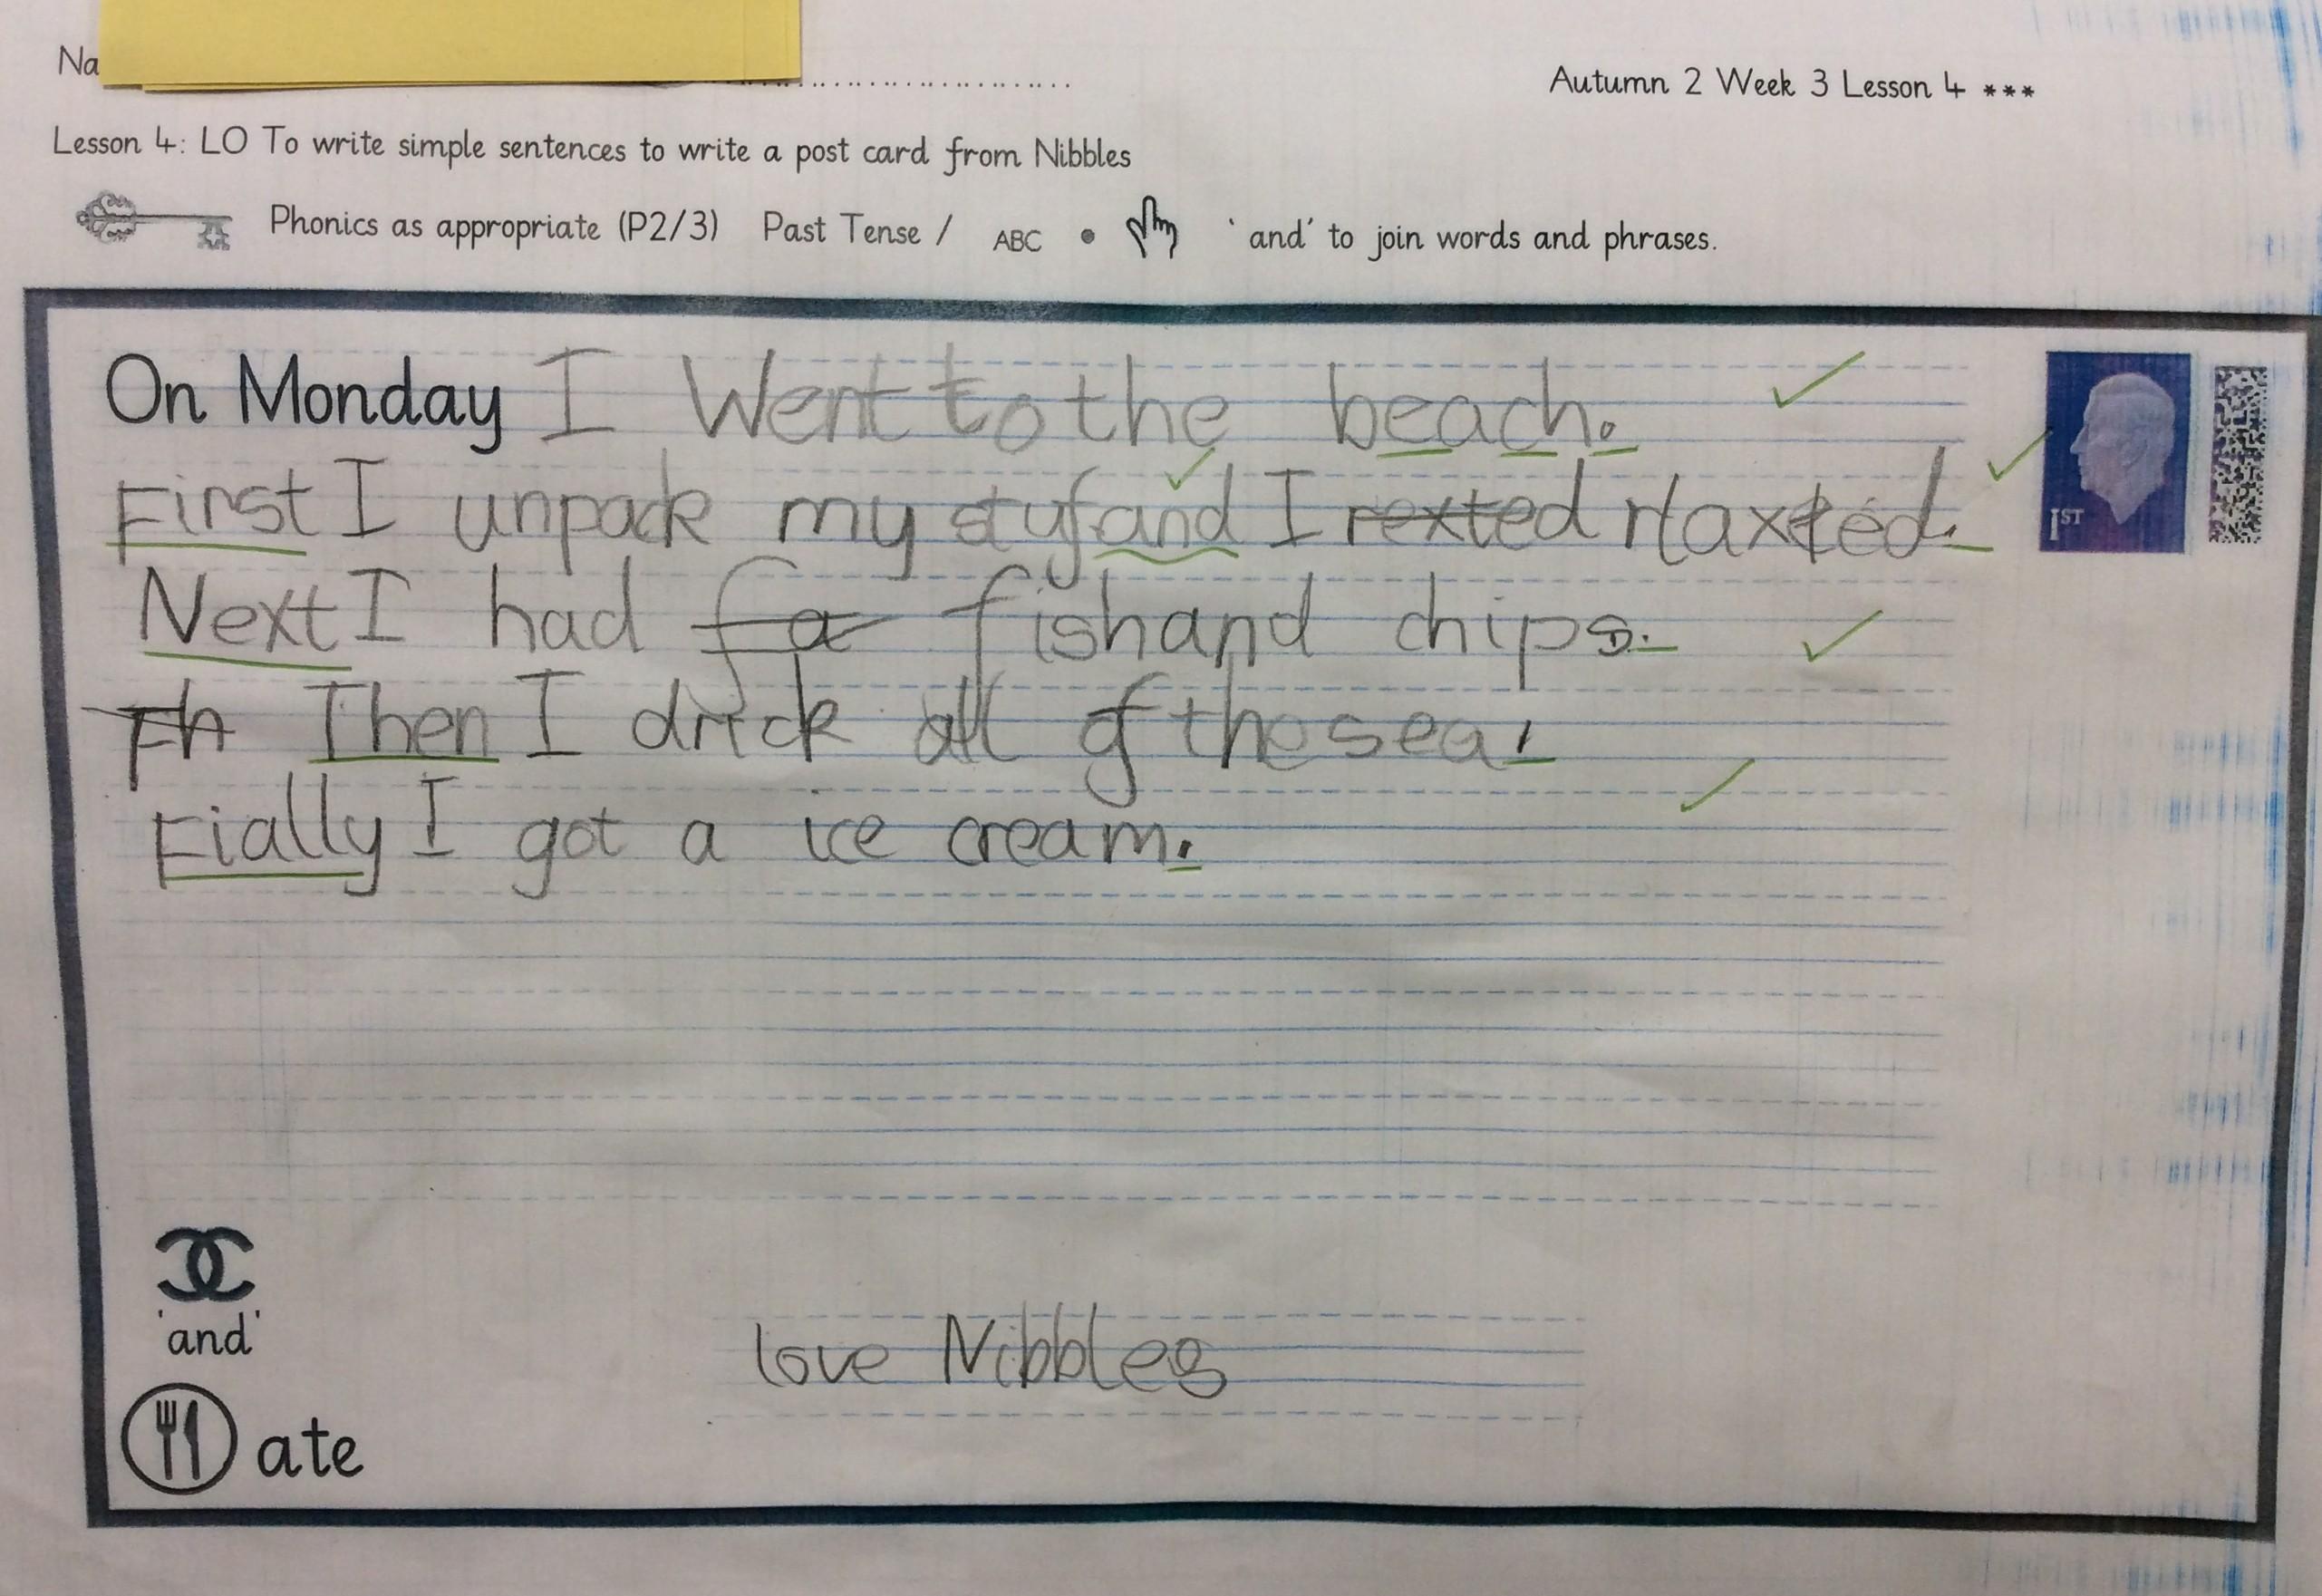 Na
Autumn 2 Week 3 Lesson 4 ***
Lesson 4: LO To write simple sentences to write a post card from Nibbles
Phonics as appropriate (P2/3) Past Tense / ABC • 'and' to join words and phrases.
On Monday I Went to the beach.
First I unpack my stuf and I rexted rlaxted.
Next I had fa fish and chips.
Th Then I drick all of the sea!
Fially I got a ice cream.
1ST
'and'
love Nibbles
ate